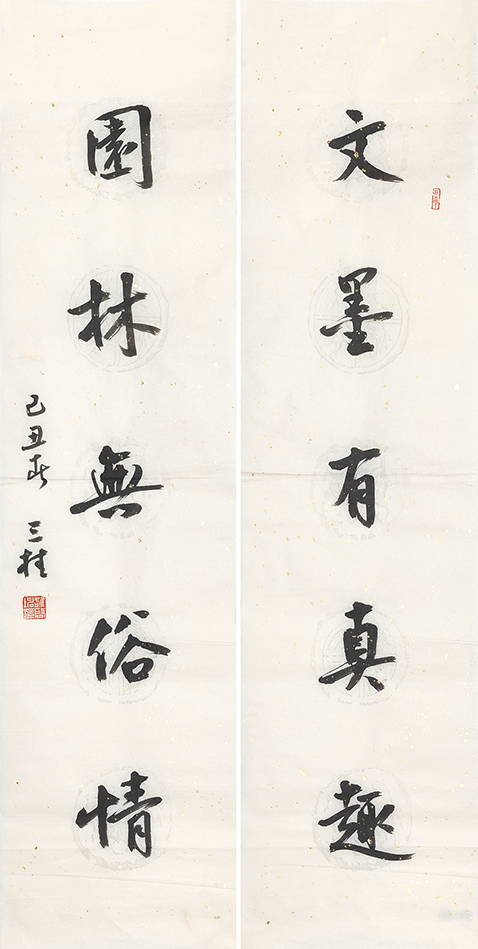 文墨有真趣
園林無俗情
己丑春 三桂